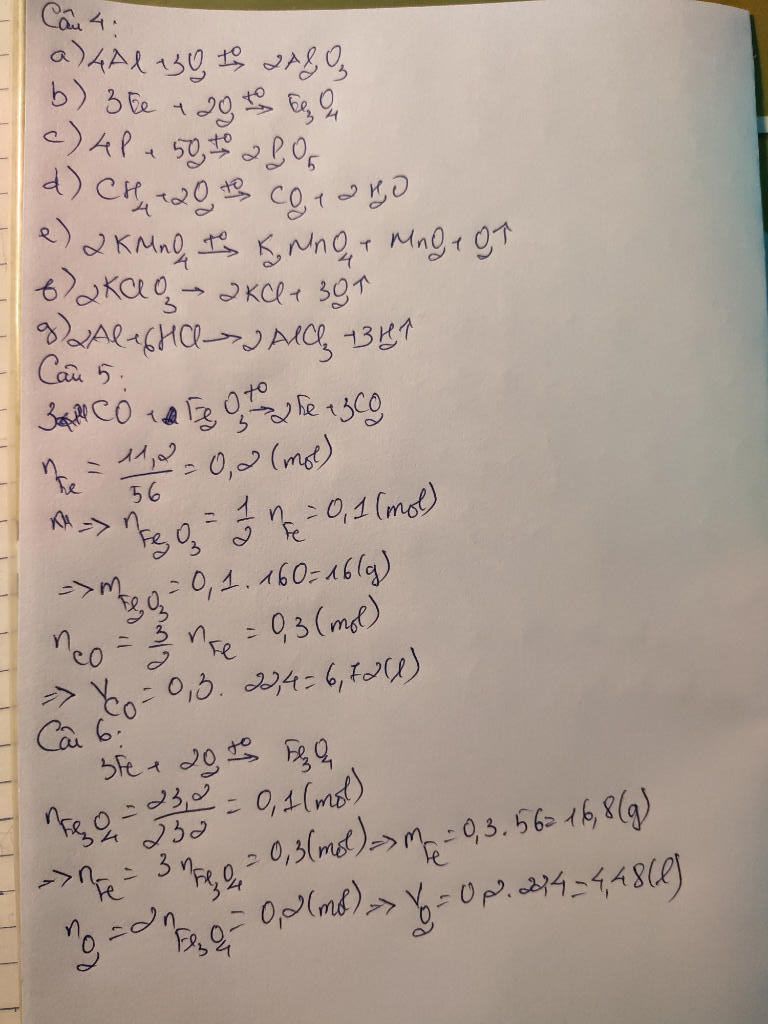 Câu 4:
a) 4Al + 3O₂ t°→ 2Al₂O₃
b) 3Fe + 2O₂ t°→ Fe₃O₄
c) 4P + 5O₂ t°→ 2P₂O₅
d) CH₄ + 2O₂ t°→ CO₂ + 2H₂O
e) 2KMnO₄ t°→ K₂MnO₄ + MnO₂ + O₂↑
f) 2KClO₃ → 2KCl + 3O₂↑
g) 2Al + 6HCl → 2AlCl₃ + 3H₂↑
Câu 5:
3CO + Fe₂O₃ t°→ 2Fe + 3CO₂
n_Fe = 11,2/56 = 0,2 (mol)
=> n_Fe₂O₃ = 1/2 n_Fe = 0,1 (mol)
=> m_Fe₂O₃ = 0,1 . 160 = 16 (g)
n_CO = 3/2 n_Fe = 0,3 (mol)
=> V_CO = 0,3 . 22,4 = 6,72 (l)
Câu 6:
3Fe + 2O₂ t°→ Fe₃O₄
n_Fe₃O₄ = 23,2/232 = 0,1 (mol)
=> n_Fe = 3 n_Fe₃O₄ = 0,3 (mol) => m_Fe = 0,3 . 56 = 16,8 (g)
n_O₂ = 2 n_Fe₃O₄ = 0,2 (mol) => V_O₂ = 0,2 . 22,4 = 4,48 (l)